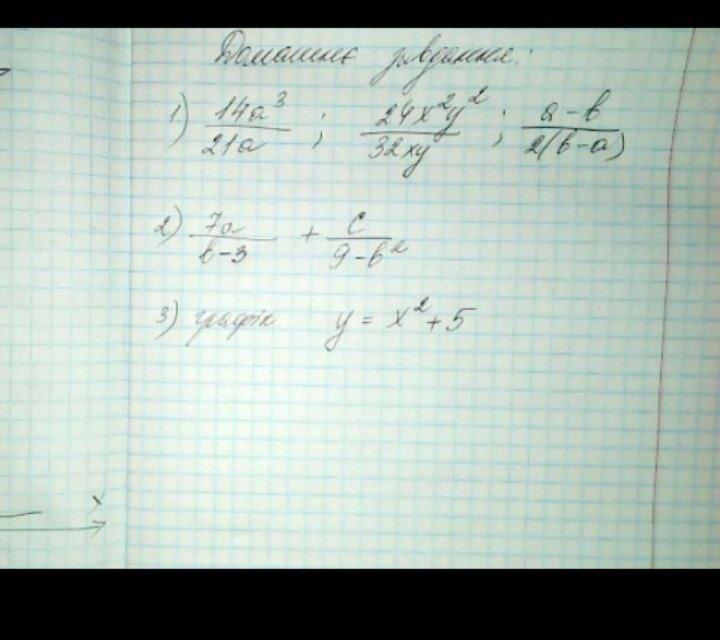 Домашнє завдання:
1) 14a³/21a ; 24x²y²/32xy ; a-b/2(b-a)
2) 7a/b-3 + c/9-b²
3) графік y = x² + 5
x